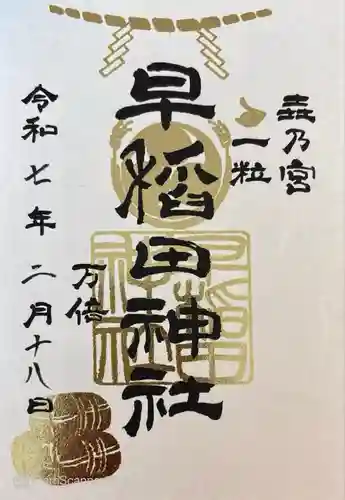 乃宮
一粒
早稲田神社
万倍
令和七年二月十八日